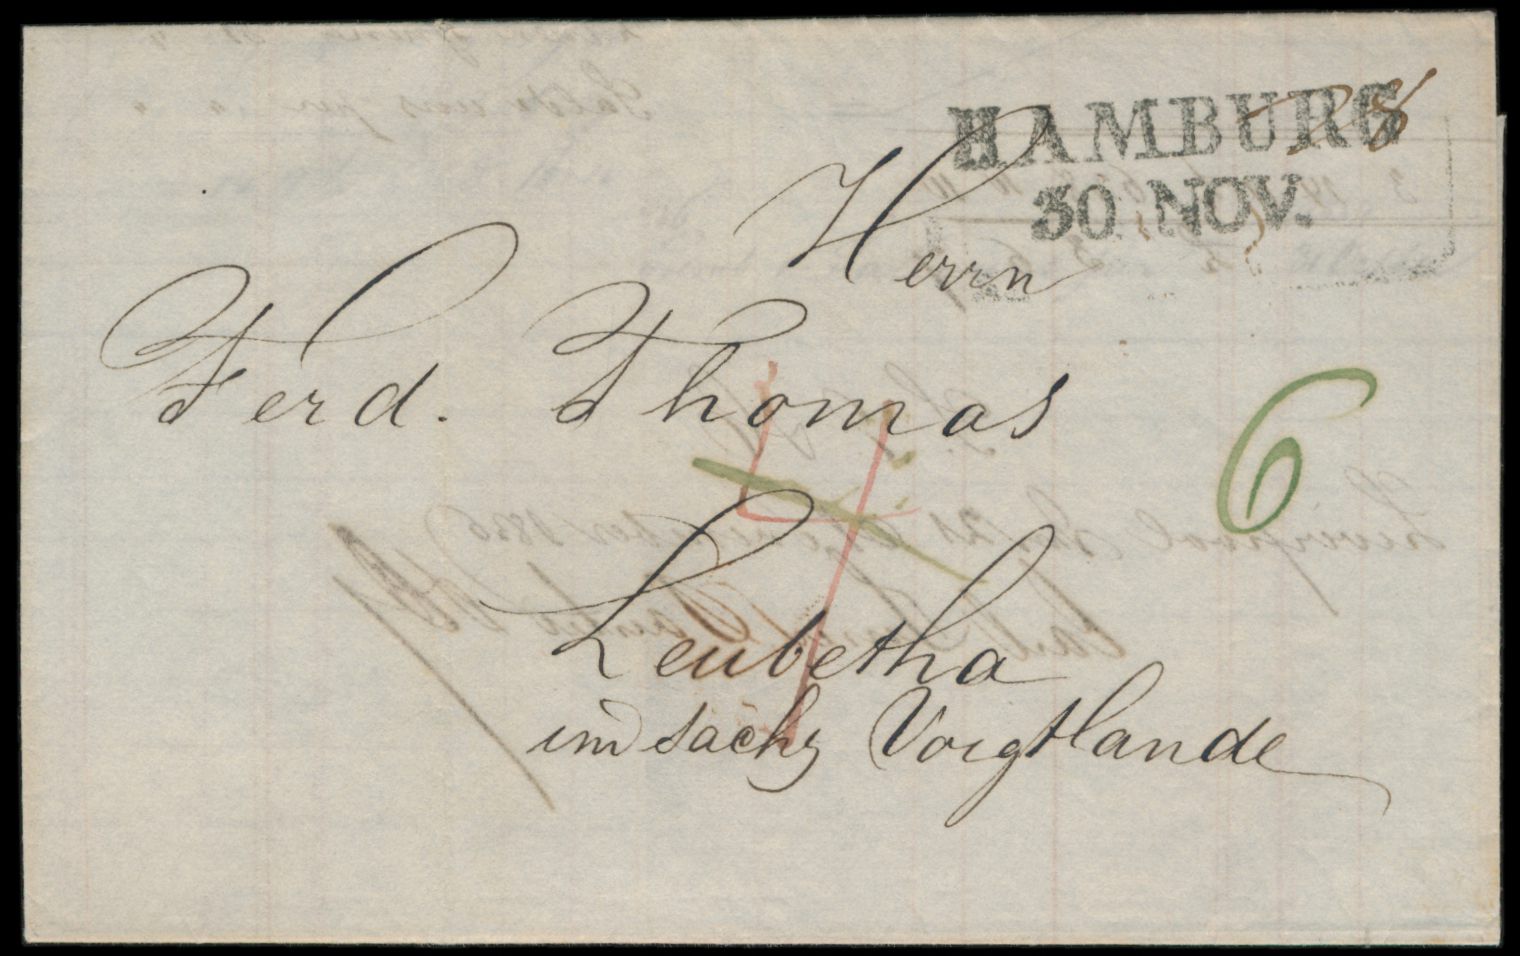 HAMBURG
30 NOV.
28
Herrn
Ferd. Thomas
6
4
Leubetha
im sächs Voigtlande